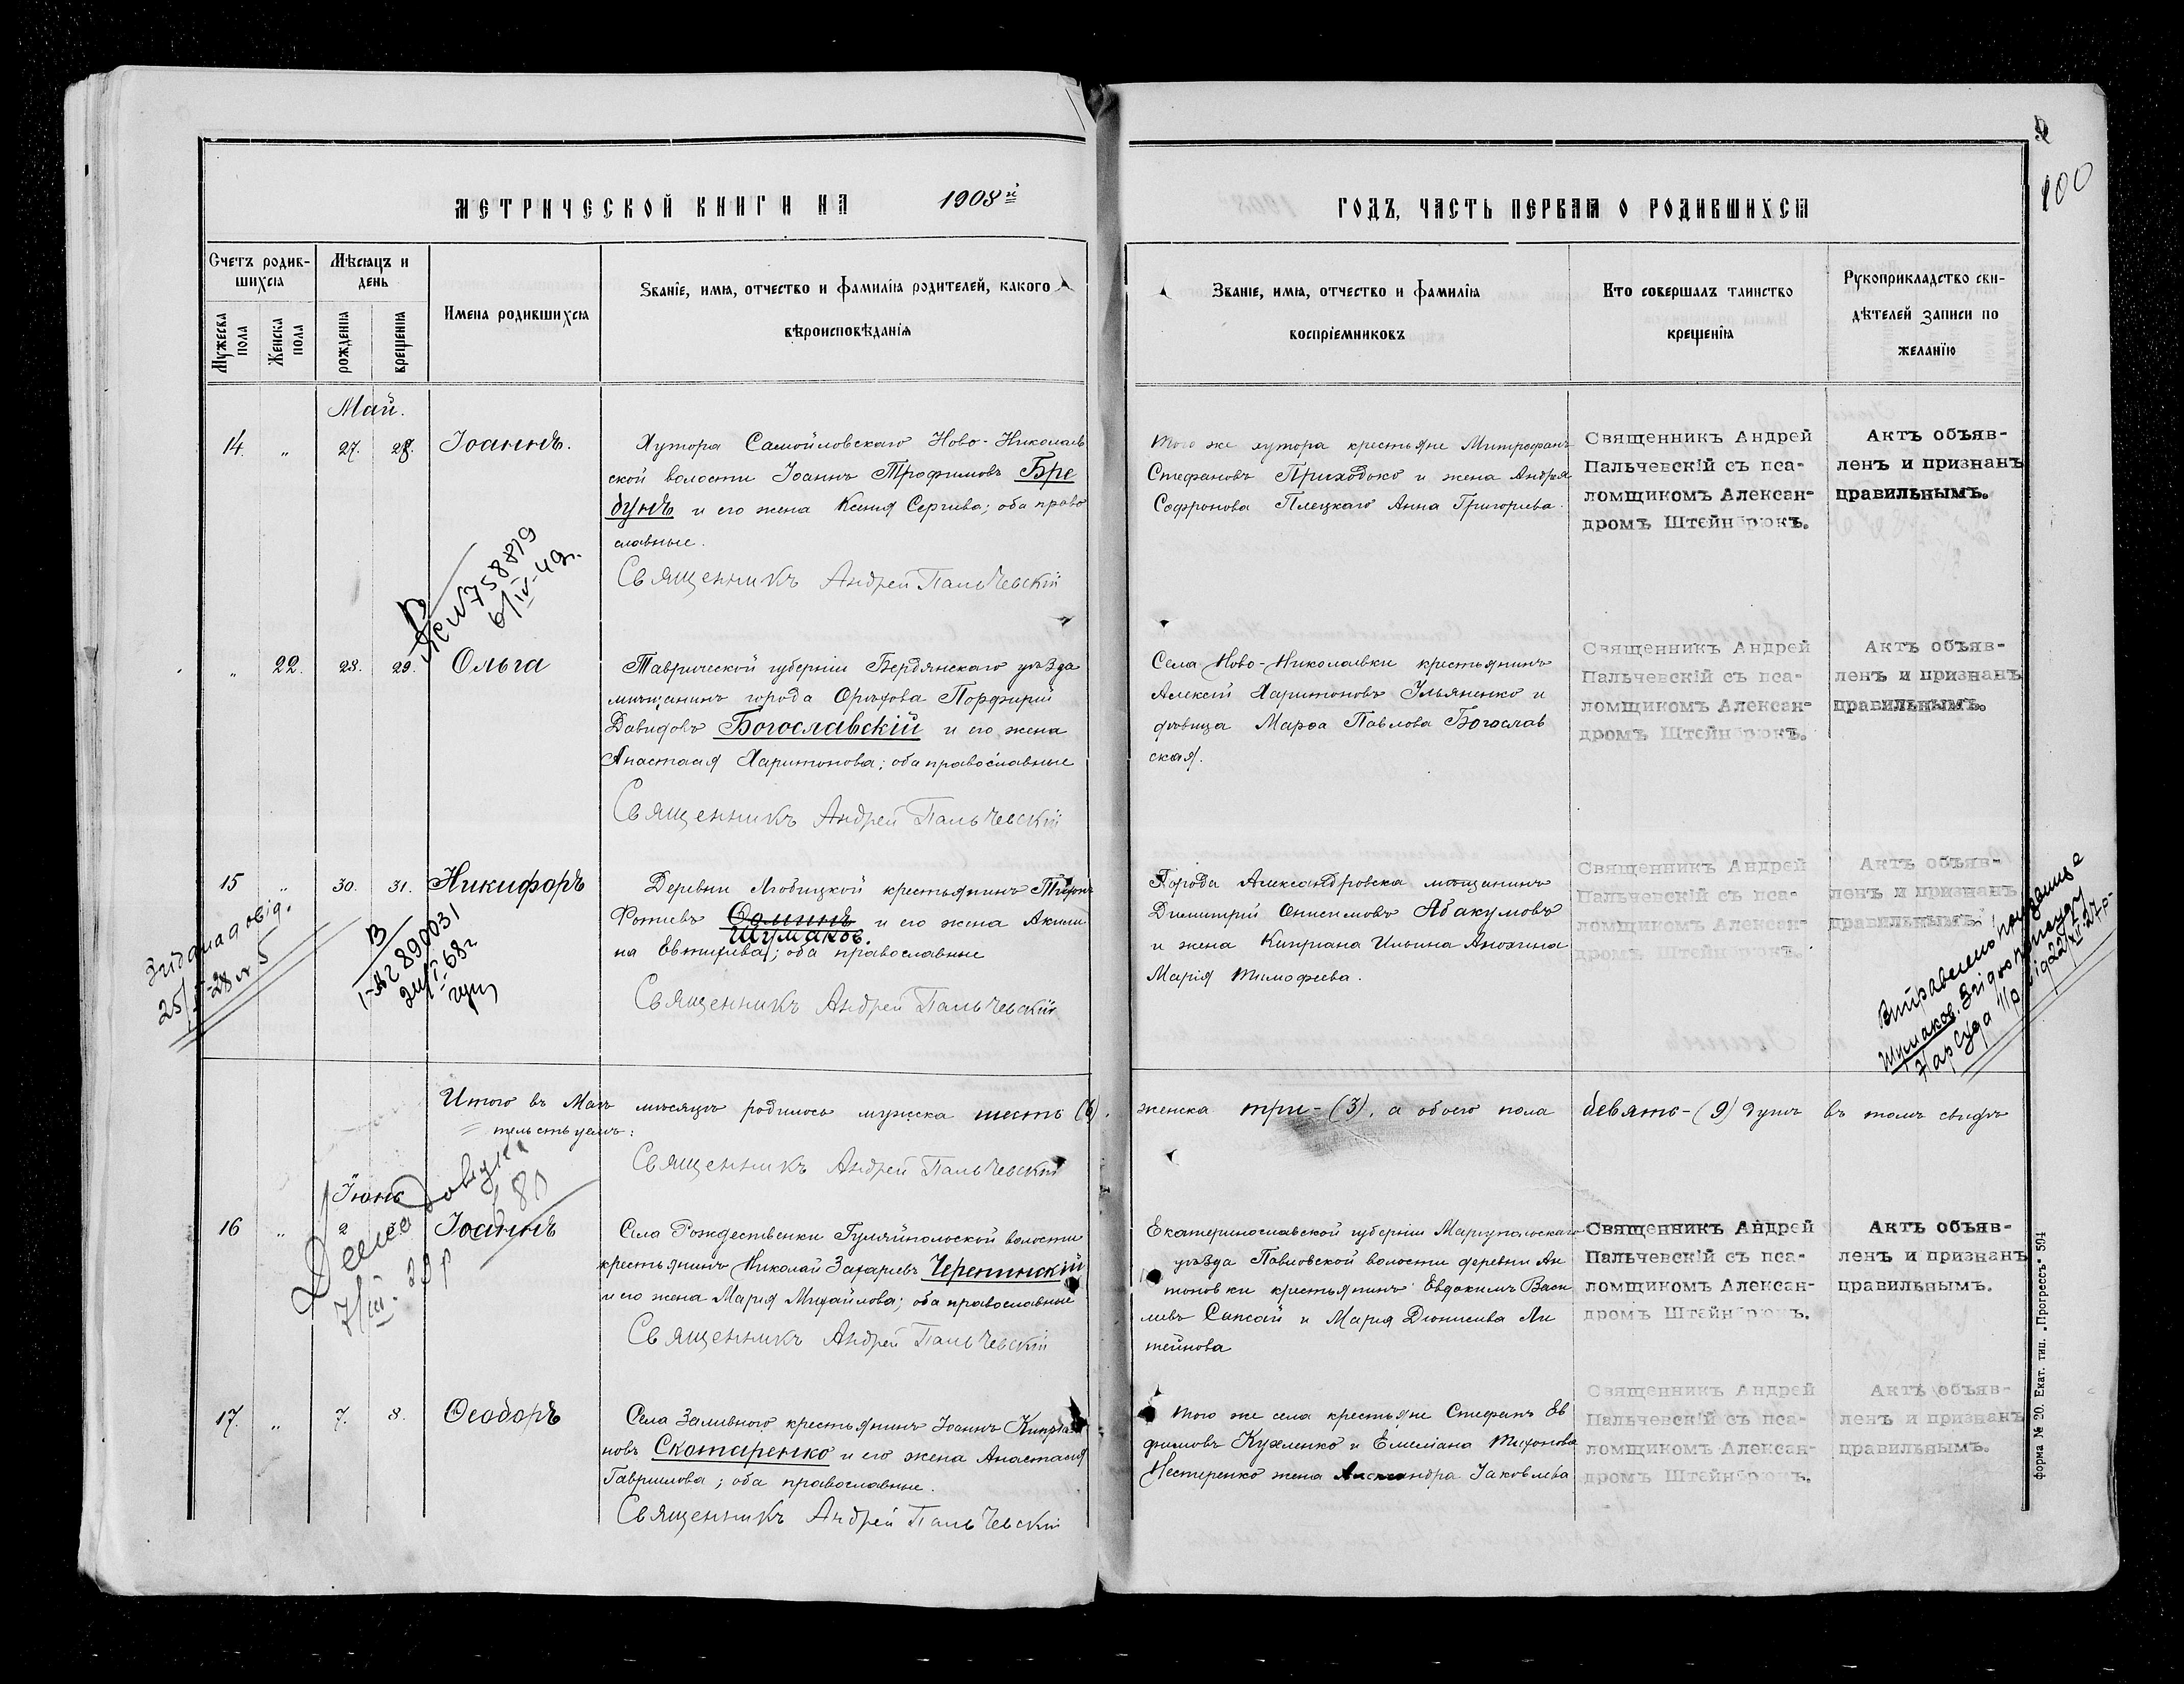 100
МЕТРИЧЕСКОЙ КНИГИ НА 1908й
ГОДЪ, ЧАСТЬ ПЕРВАЯ О РОДИВШИХСЯ
Счетъ родив-
шихся
Мѣсяцъ и
день
Мужеска
пола
Женска
пола
рожденія
крещенія
Имена родившихся
Званіе, имя, отчество и фамилія родителей, какого
вѣроисповѣданія
Званіе, имя, отчество и фамилія
воспріемниковъ
Кто совершалъ таинство
крещенія
Рукоприкладство сви-
дѣтелей записи по
желанію
Май.
14. „ 27. 28. Іоаннъ.
Хутора Самойловскаго Ново-Николаев
ской волости Іоаннъ Трофимовъ Бре
бунъ и его жена Ксенія Сергіева; оба право
славные.
Священникъ Андрей Пальчевскій
Того же хутора крестьяне Митрофанъ
Стефановъ Приходько и жена Андрея
Софронова Плецкаго Анна Григорьева.
Священникъ Андрей
Пальчевскій съ пса-
ломщикомъ Алексан-
дромъ Штейнбрюкъ.
Актъ объяв-
ленъ и признанъ
правильнымъ.
№758819
6/IV-49г.
„ 22. 28. 29. Ольга
Таврической губерніи Бердянскаго уѣзда
мѣщанинъ города Орѣхова Порфирій
Давидовъ Богославскій и его жена
Анастасія Харитонова; оба православные
Священникъ Андрей Пальчевскій
Села Ново-Николаевки крестьянинъ
Алексій Харитоновъ Ульяненко и
дѣвица Марѳа Павлова Богослав
ская.
Священникъ Андрей
Пальчевскій съ пса-
ломщикомъ Алексан-
дромъ Штейнбрюкъ.
Актъ объяв-
ленъ и признанъ
правильнымъ.
15 „ 30. 31. Никифоръ
Деревни Любицкой крестьянинъ
Фотіевъ и его жена Акили
Шумаков.
на Евтихіева; оба православные
Священникъ Андрей Пальчевскій
Города Александровска мѣщанинъ
Димитрій Онисимовъ Абакумовъ
и жена Кипріана Ильина Анохина
Марія Тимофеева.
Священникъ Андрей
Пальчевскій съ пса-
ломщикомъ Алексан-
дромъ Штейнбрюкъ.
Актъ объяв-
ленъ и признанъ
правильнымъ.
890031
68г
Виправлено прізвище
Шумаков. Згідно присуду
Нарсуда
Итого въ Маѣ мѣсяцѣ родилось мужеска шесть (6), женска три-(3), а обоего пола девять-(9) душъ въ томъ свидѣ
тельствуемъ:
Священникъ Андрей Пальчевскій
Іюнь
16 „ 2 Іоаннъ
Села Рождественки Гуляйпольской волости
крестьянинъ Николай Захаріевъ Черепинскій
и его жена Марія Михайлова; оба православные
Священникъ Андрей Пальчевскій
Екатеринославской губерніи Маріупольскаго
уѣзда Павловской волости деревни Ан
тоновки крестьянинъ Евдокимъ Васи
ліевъ Сапсай и Марія Діонисіева Ли
тейнова
Священникъ Андрей
Пальчевскій съ пса-
ломщикомъ Алексан-
дромъ Штейнбрюкъ.
Актъ объяв-
ленъ и признанъ
правильнымъ.
17. „ 7. 8. Ѳеодоръ
Села Заливного крестьянинъ Іоаннъ Кипріа
новъ Скотаренко и его жена Анастасія
Гавриилова; оба православные.
Священникъ Андрей Пальчевскій
Того же села крестьяне Стефанъ Ев
фимовъ Кухленко и Емеліана Тихонова
Нестеренко жена Александра Іаковлева
Священникъ Андрей
Пальчевскій съ пса-
ломщикомъ Алексан-
дромъ Штейнбрюкъ.
Актъ объяв-
ленъ и признанъ
правильнымъ.
форма № 20. Екат. тип. „Прогрессъ" 594